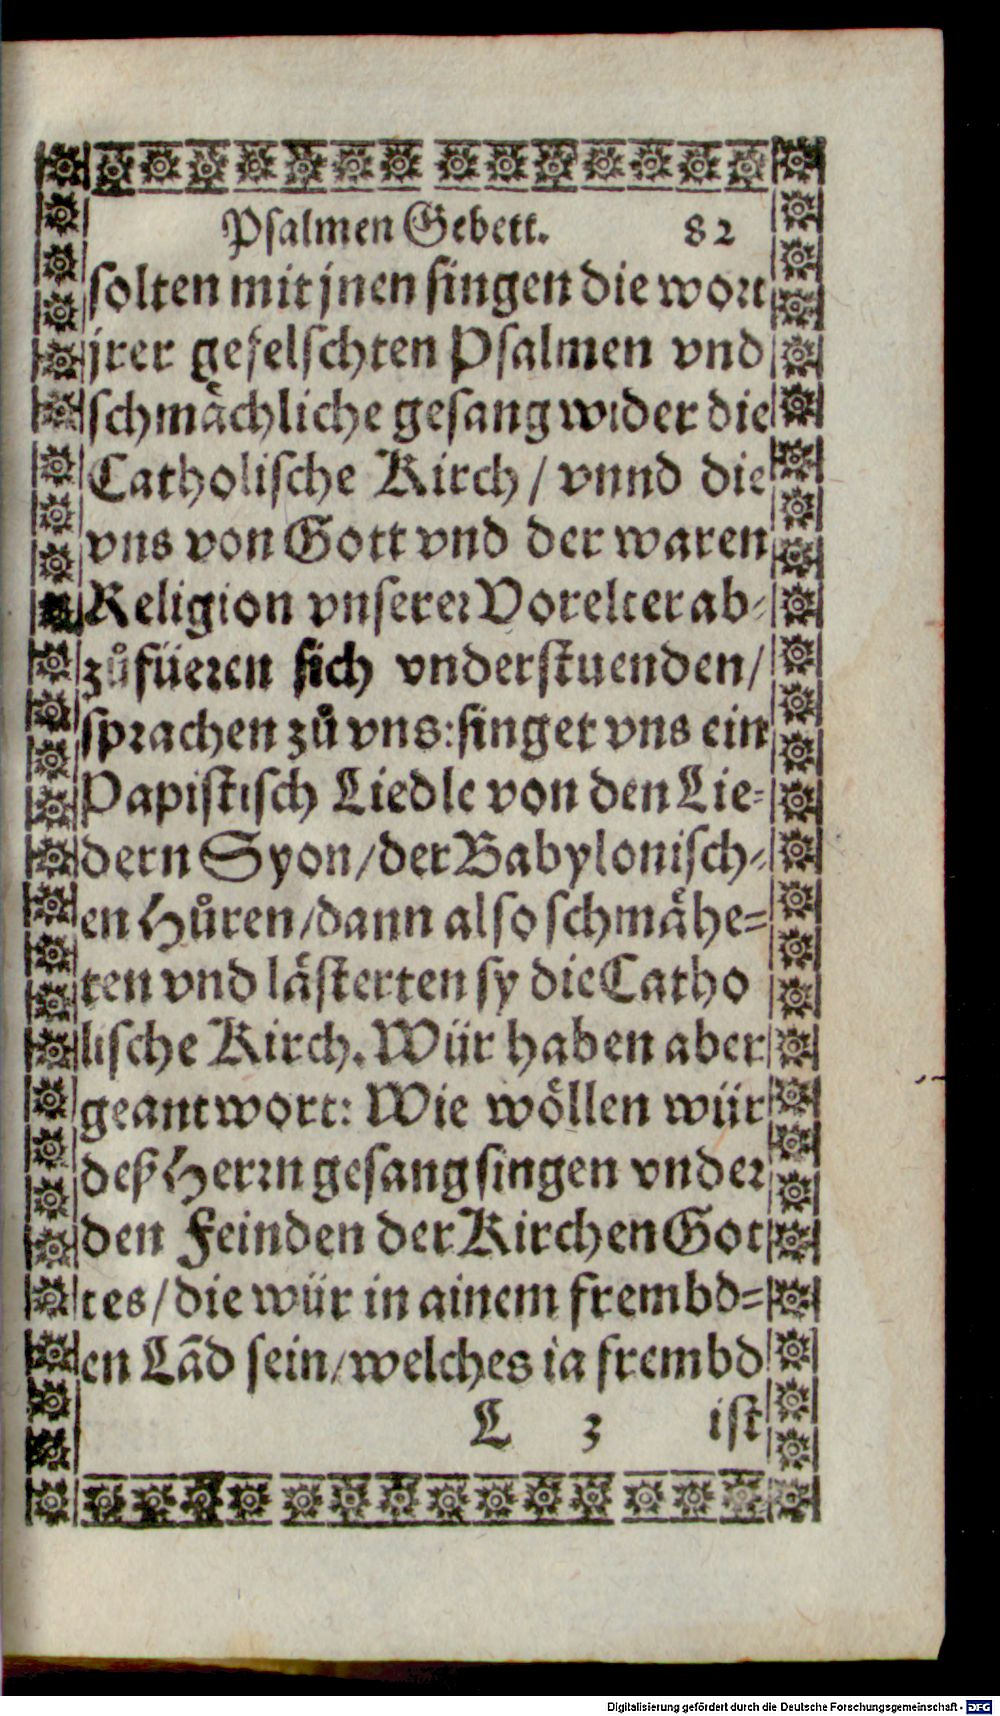 Psalmen Gebett. 82
solten mit jnen singen die wort
jrer gefelschten Psalmen vnd
schmächliche gesang wider die
Catholische Kirch / vnnd die
vns von Gott vnd der waren
Religion vnserer Vorelter ab-
zůfüeren sich vnderstuenden /
sprachen zů vns: singet vns ein
Papistisch Liedle von den Lie-
dern Syon / der Babylonisch-
en Hůren / dann also schmåhe-
ten vnd lästerten sy die Catho
lische Kirch. Wür haben aber
geantwort: Wie wöllen wür
deß Herrn gesang singen vnder
den Feinden der Kirchen Got
tes / die wür in ainem frembd-
en Lãd sein / welches ia frembd
L 3 ist
Digitalisierung gefördert durch die Deutsche Forschungsgemeinschaft - DFG